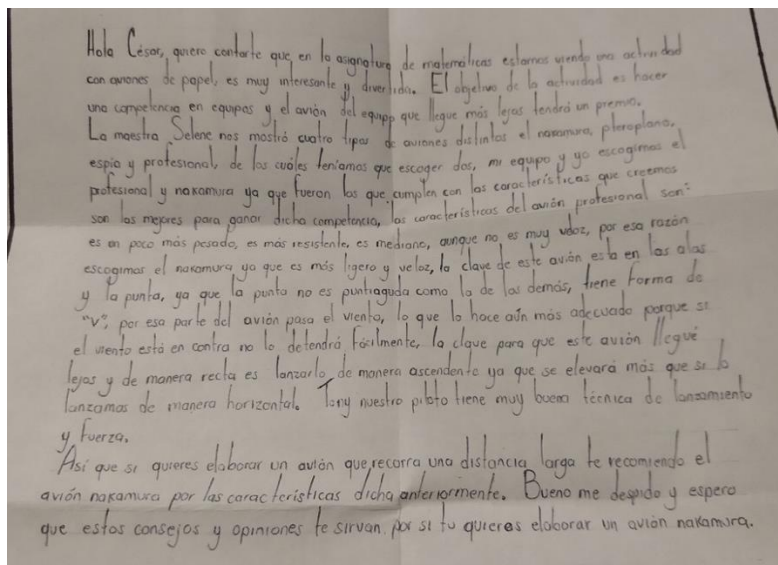 Hola César, quiero contarte que en la asignatura de matemáticas estamos viendo una actividad
con aviones de papel, es muy interesante y divertida. El objetivo de la actividad es hacer
una competencia en equipos y el avión del equipo que llegue más lejos tendrá un premio.
La maestra Selene nos mostró cuatro tipos de aviones distintos el nakamura, pteroplano,
espía y profesional, de los cuáles teníamos que escoger dos, mi equipo y yo escogimos el
profesional y nakamura ya que fueron los que cumplen con las características que creemos
son las mejores para ganar dicha competencia, las características del avión profesional son:
es un poco más pesado, es más resistente, es mediano, aunque no es muy veloz, por esa razón
escogimos el nakamura ya que es más ligero y veloz, la clave de este avión está en las alas
y la punta, ya que la punta no es puntiaguda como la de los demás, tiene forma de
"v", por esa parte del avión pasa el viento, lo que lo hace aún más adecuado porque si
el viento está en contra no lo detendrá fácilmente, la clave para que este avión llegué
lejos y de manera recta es lanzarlo de manera ascendente ya que se elevará más que si lo
lanzamos de manera horizontal. Tony nuestro piloto tiene muy buena técnica de lanzamiento
y fuerza.
Así que si quieres elaborar un avión que recorra una distancia larga te recomiendo el
avión nakamura por las características dicha anteriormente. Bueno me despido y espero
que estos consejos y opiniones te sirvan por si tu quieres elaborar un avión nakamura.